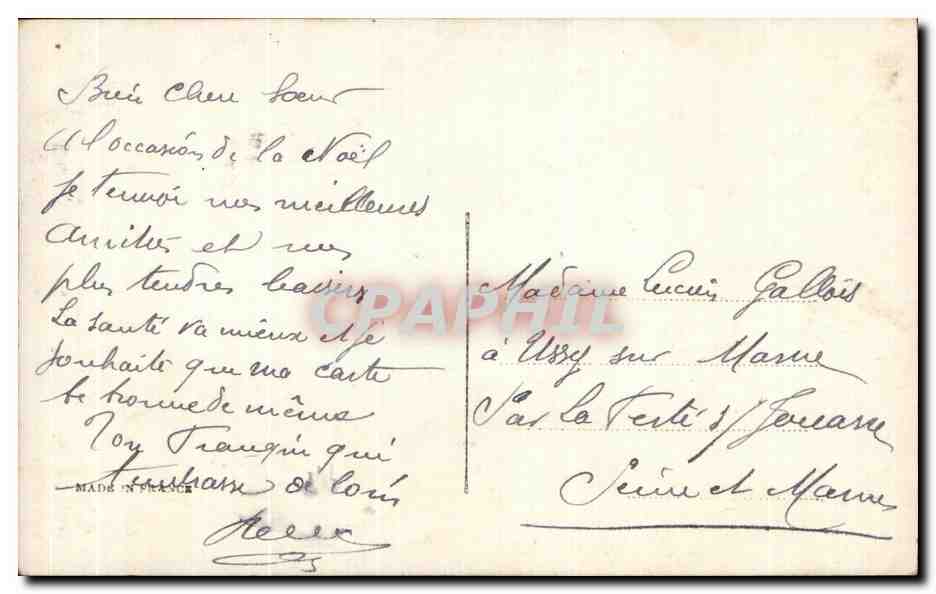 Bien Chere Soeur
A l'occasion de la Noël
Je t'envoi nos meilleures
Amitiés et nos
plus tendres baisers
La santé va mieux et je
souhaite que ma carte
te trouve de même
Ton Frangin qui
t'embrasse de loin
MADE IN FRANCE
CPAPHIL
Madame Lucien Gallois
à Ussy sur Marne
Par La Ferté s/ Jouarre
Seine et Marne